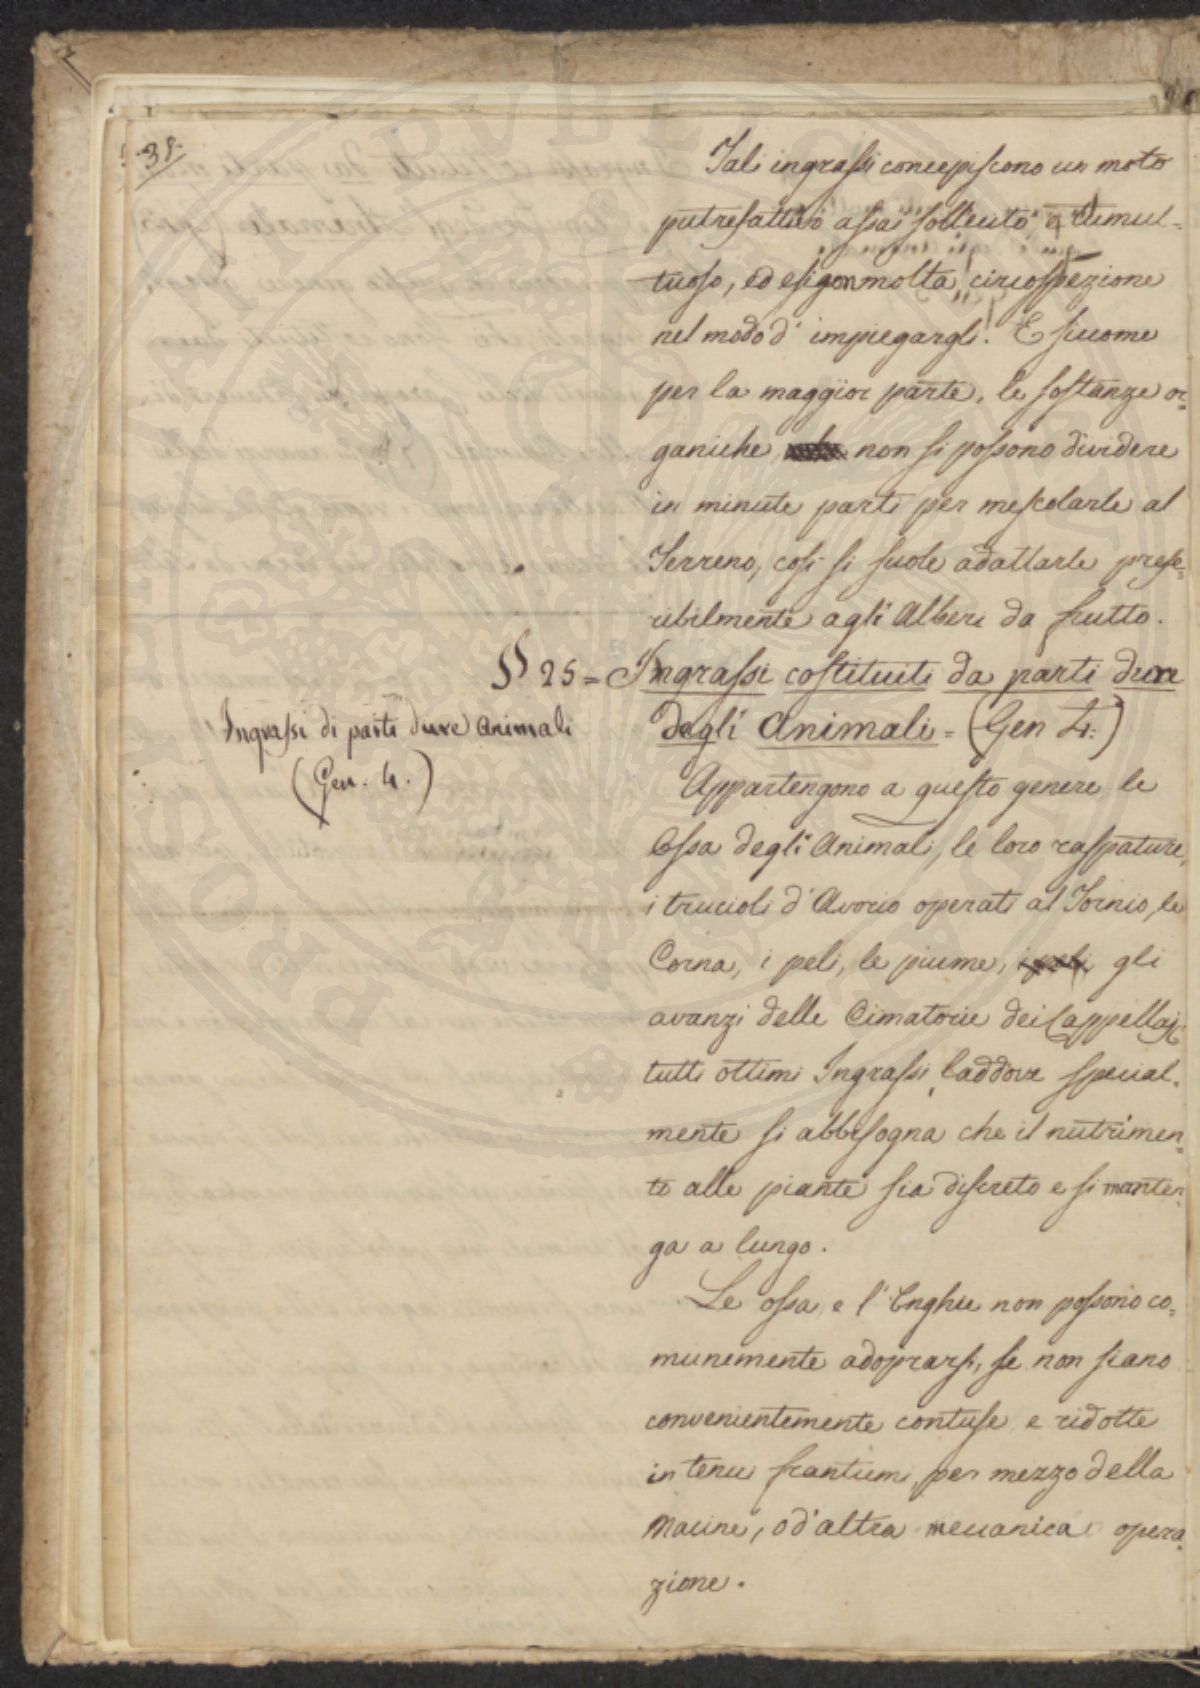 38.
Tali ingrassi concepiscono un moto
putrefattivo assai sollecito, e tumul-
tuoso, ed esigon molta circospezione
nel modo d'impiegargli. E siccome
per la maggior parte, le sostanze or-
ganiche non si possono dividere
in minute parti per mescolarle al
Terreno, così si suole adattarle prefe-
ribilmente agli Alberi da frutto.
§§ 25 = Ingrassi costituiti da parti dure
degli Animali = (Gen 4.)
Ingrassi di parti dure Animali
(Gen. 4.)
Appartengono a questo genere le
Ossa degli Animali, le loro raspature,
i trucioli d'Avorio operati al Tornio, le
Corna, i peli, le piume, i peli, gli
avanzi delle Cimatorie dei Cappellaj
tutti ottimi Ingrassi, laddove special-
mente si abbisogna che il nutrimen-
to alle piante sia discreto e si manten-
ga a lungo.
Le ossa, e l'Unghie non possono co-
munemente adoprarsi, se non siano
convenientemente contuse, e ridotte
in tenui frantumi, per mezzo della
Macine, o d'altra meccanica opera-
zione.